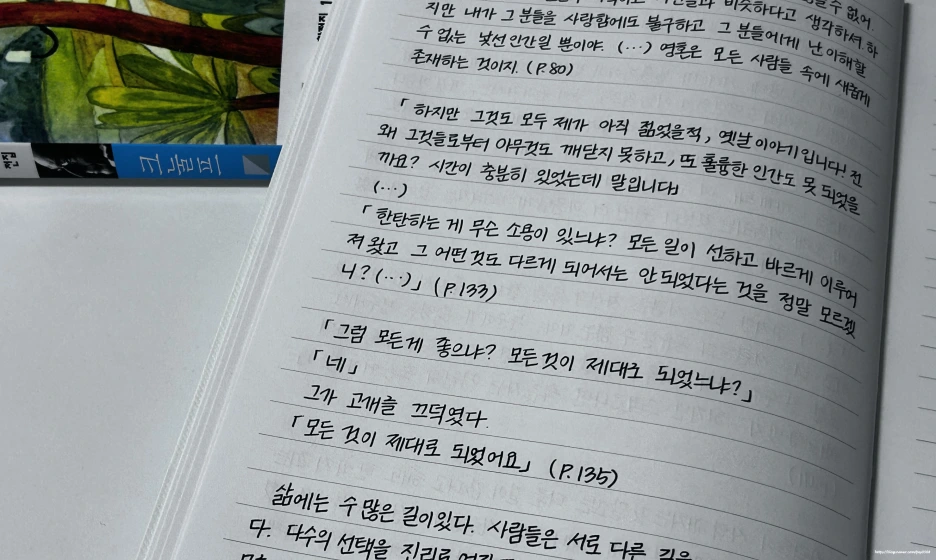 비슷하다고 생각하셔. 하
지만 내가 그 분들을 사랑함에도 불구하고 그 분들에게 난 이해할
수 없는 낯선 인간일 뿐이야. (···) 영혼은 모든 사람들 속에 새롭게
존재하는 것이지. (P.80)
「하지만 그것도 모두 제가 아직 젊었을적, 옛날 이야기입니다! 전
왜 그것들로부터 아무것도 깨닫지 못하고, 또 훌륭한 인간도 못 되었을
까요? 시간이 충분히 있었는데 말입니다」
(···)
「한탄하는 게 무슨 소용이 있느냐? 모든 일이 선하고 바르게 이루어
져 왔고 그 어떤것도 다르게 되어서는 안 되었다는 것을 정말 모르겠
니? (···)」 (P.133)
「그럼 모든게 좋으냐? 모든것이 제대로 되었느냐?」
「네」
그가 고개를 끄덕였다.
「모든 것이 제대로 되었어요」 (P.135)
삶에는 수 많은 길이있다. 사람들은 서로 다른 길을
다. 다수의 선택을 진리로
크눌프